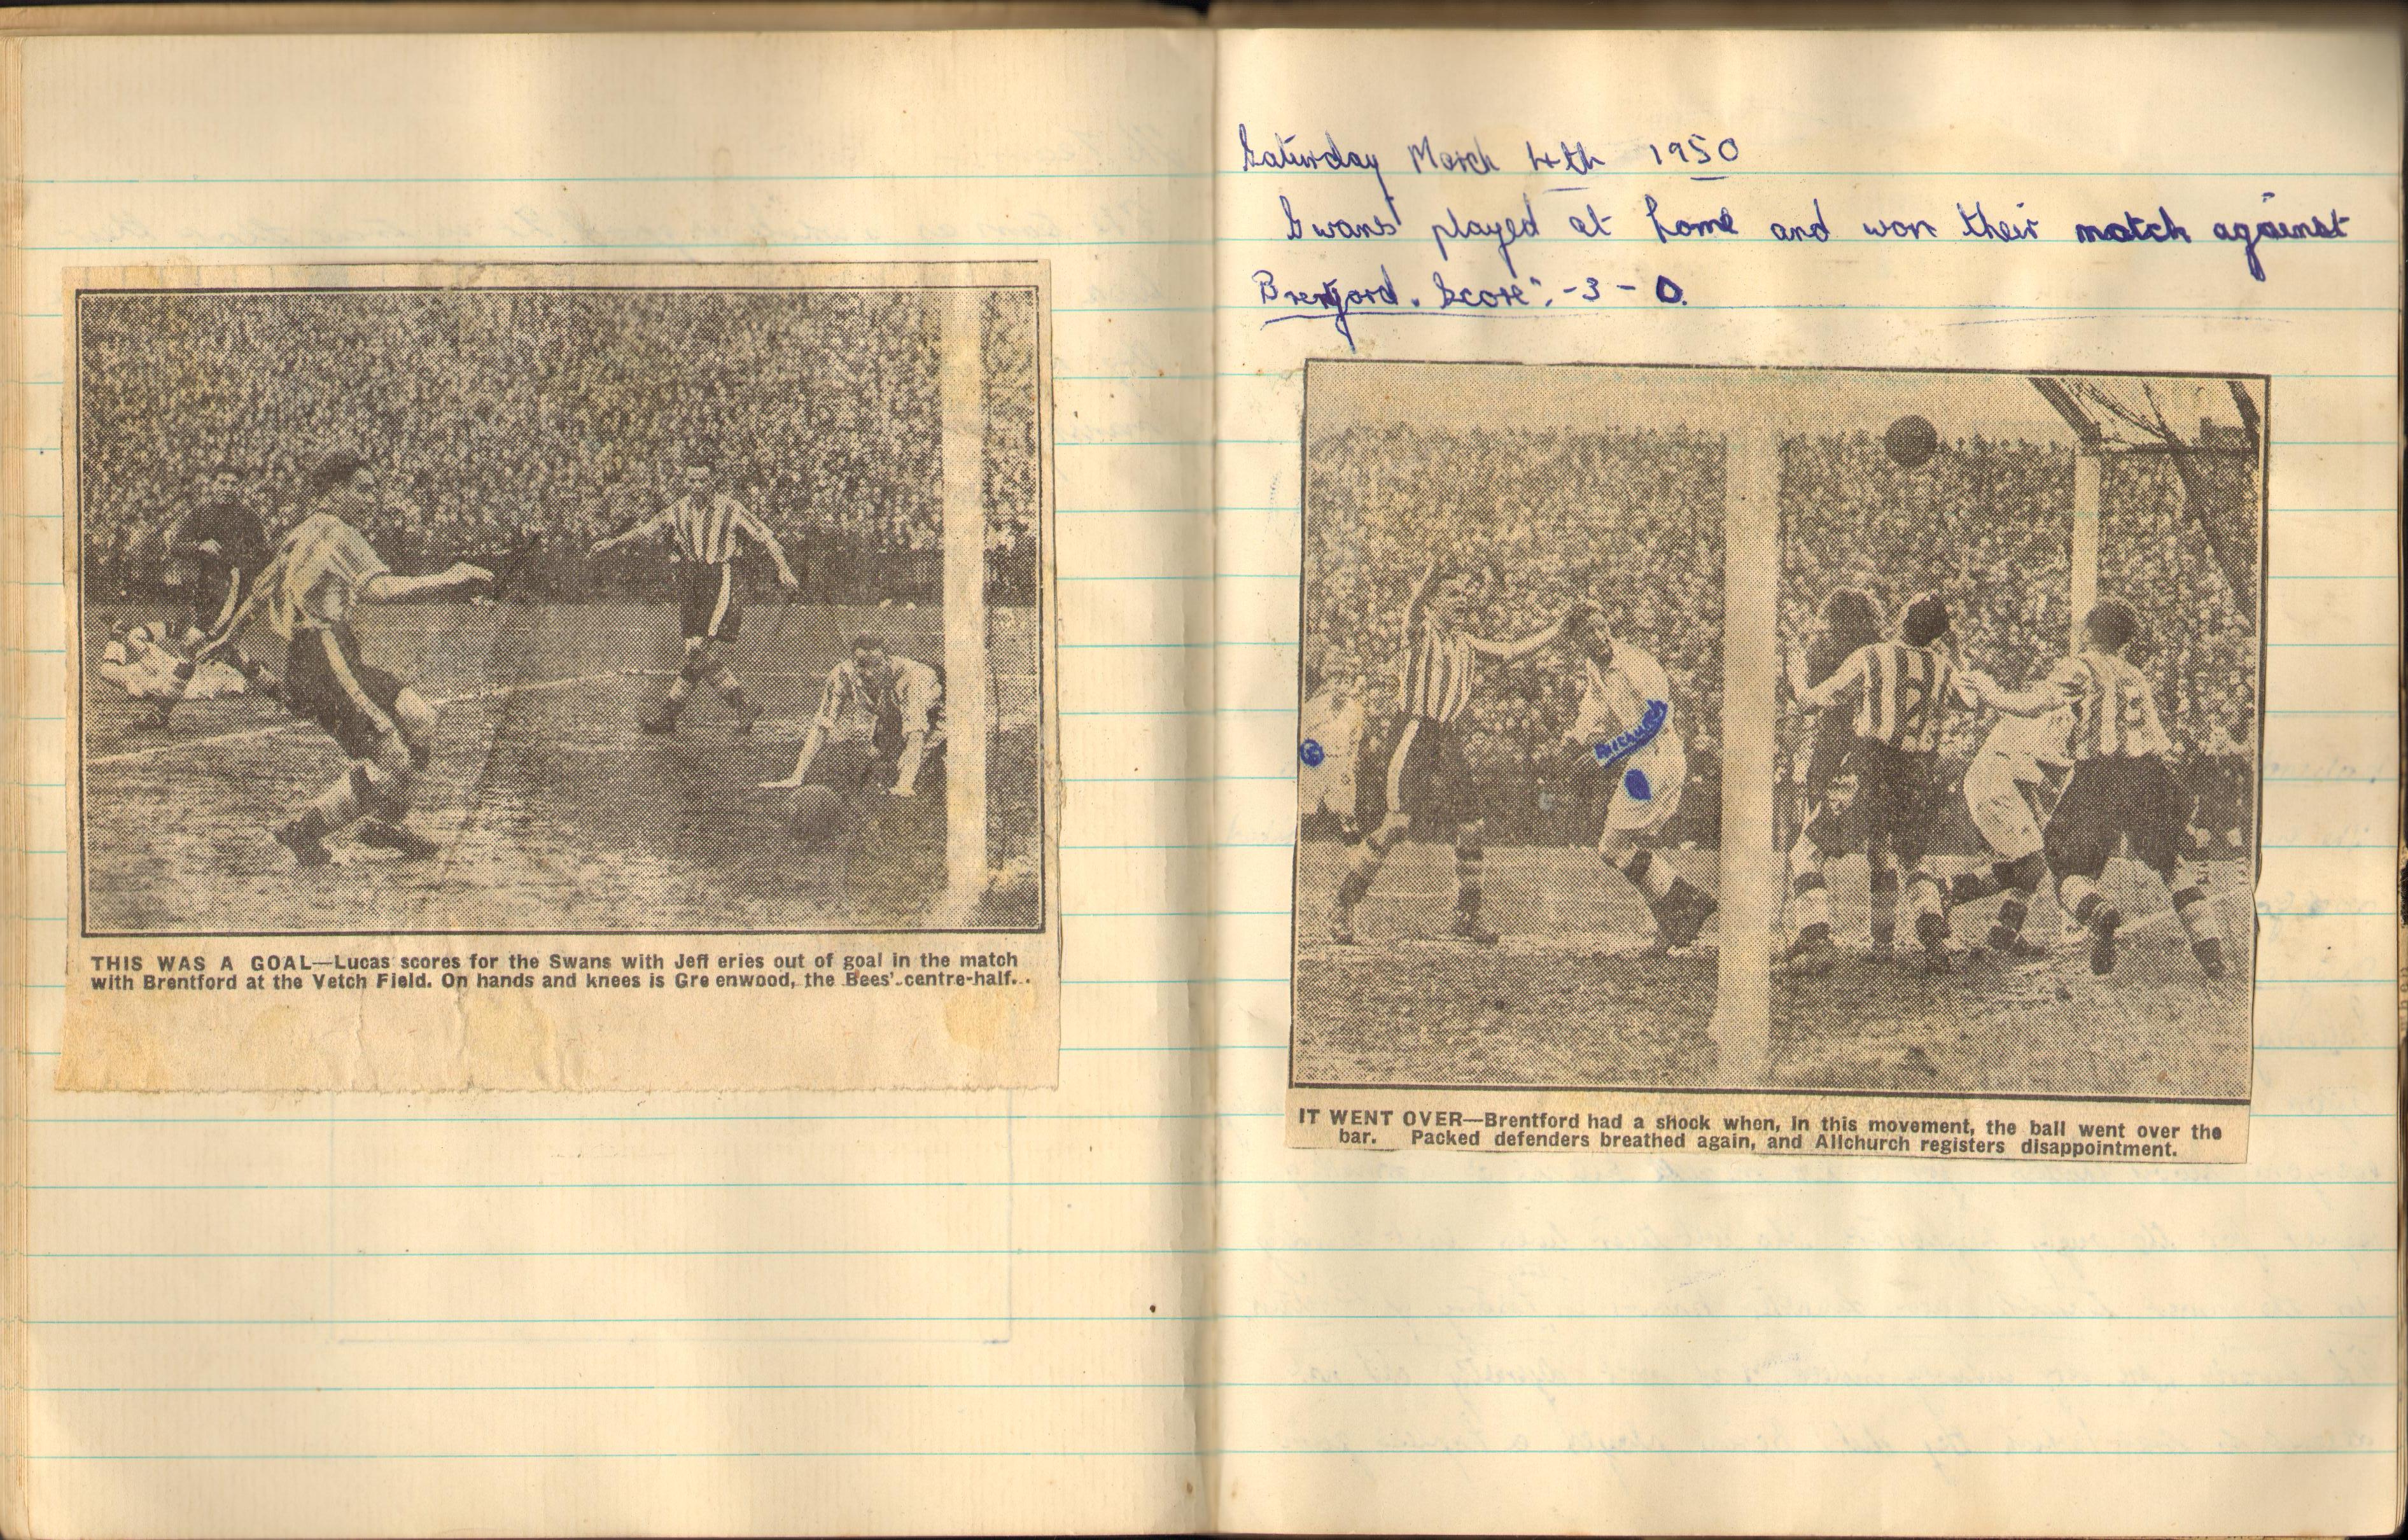 THIS WAS A GOAL—Lucas scores for the Swans with Jeff eries out of goal in the match
with Brentford at the Vetch Field. On hands and knees is Gre enwood, the Bees' centre-half.
Saturday March 4th 1950
Swans played at home and won their match against
Brentford. Score:-3-0.
Allchurch
IT WENT OVER—Brentford had a shock when, in this movement, the ball went over the
bar. Packed defenders breathed again, and Allchurch registers disappointment.